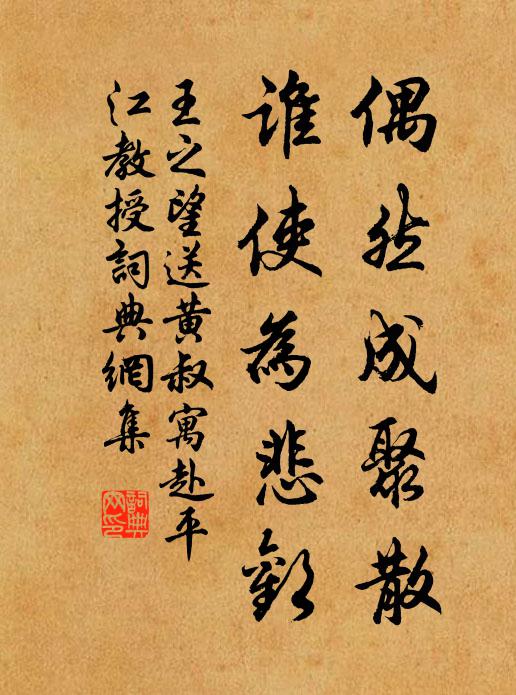 偶然成聚散
誰使為悲歡
王之望送黄叔寓赴平
江教授詞典網集
詞典
网印